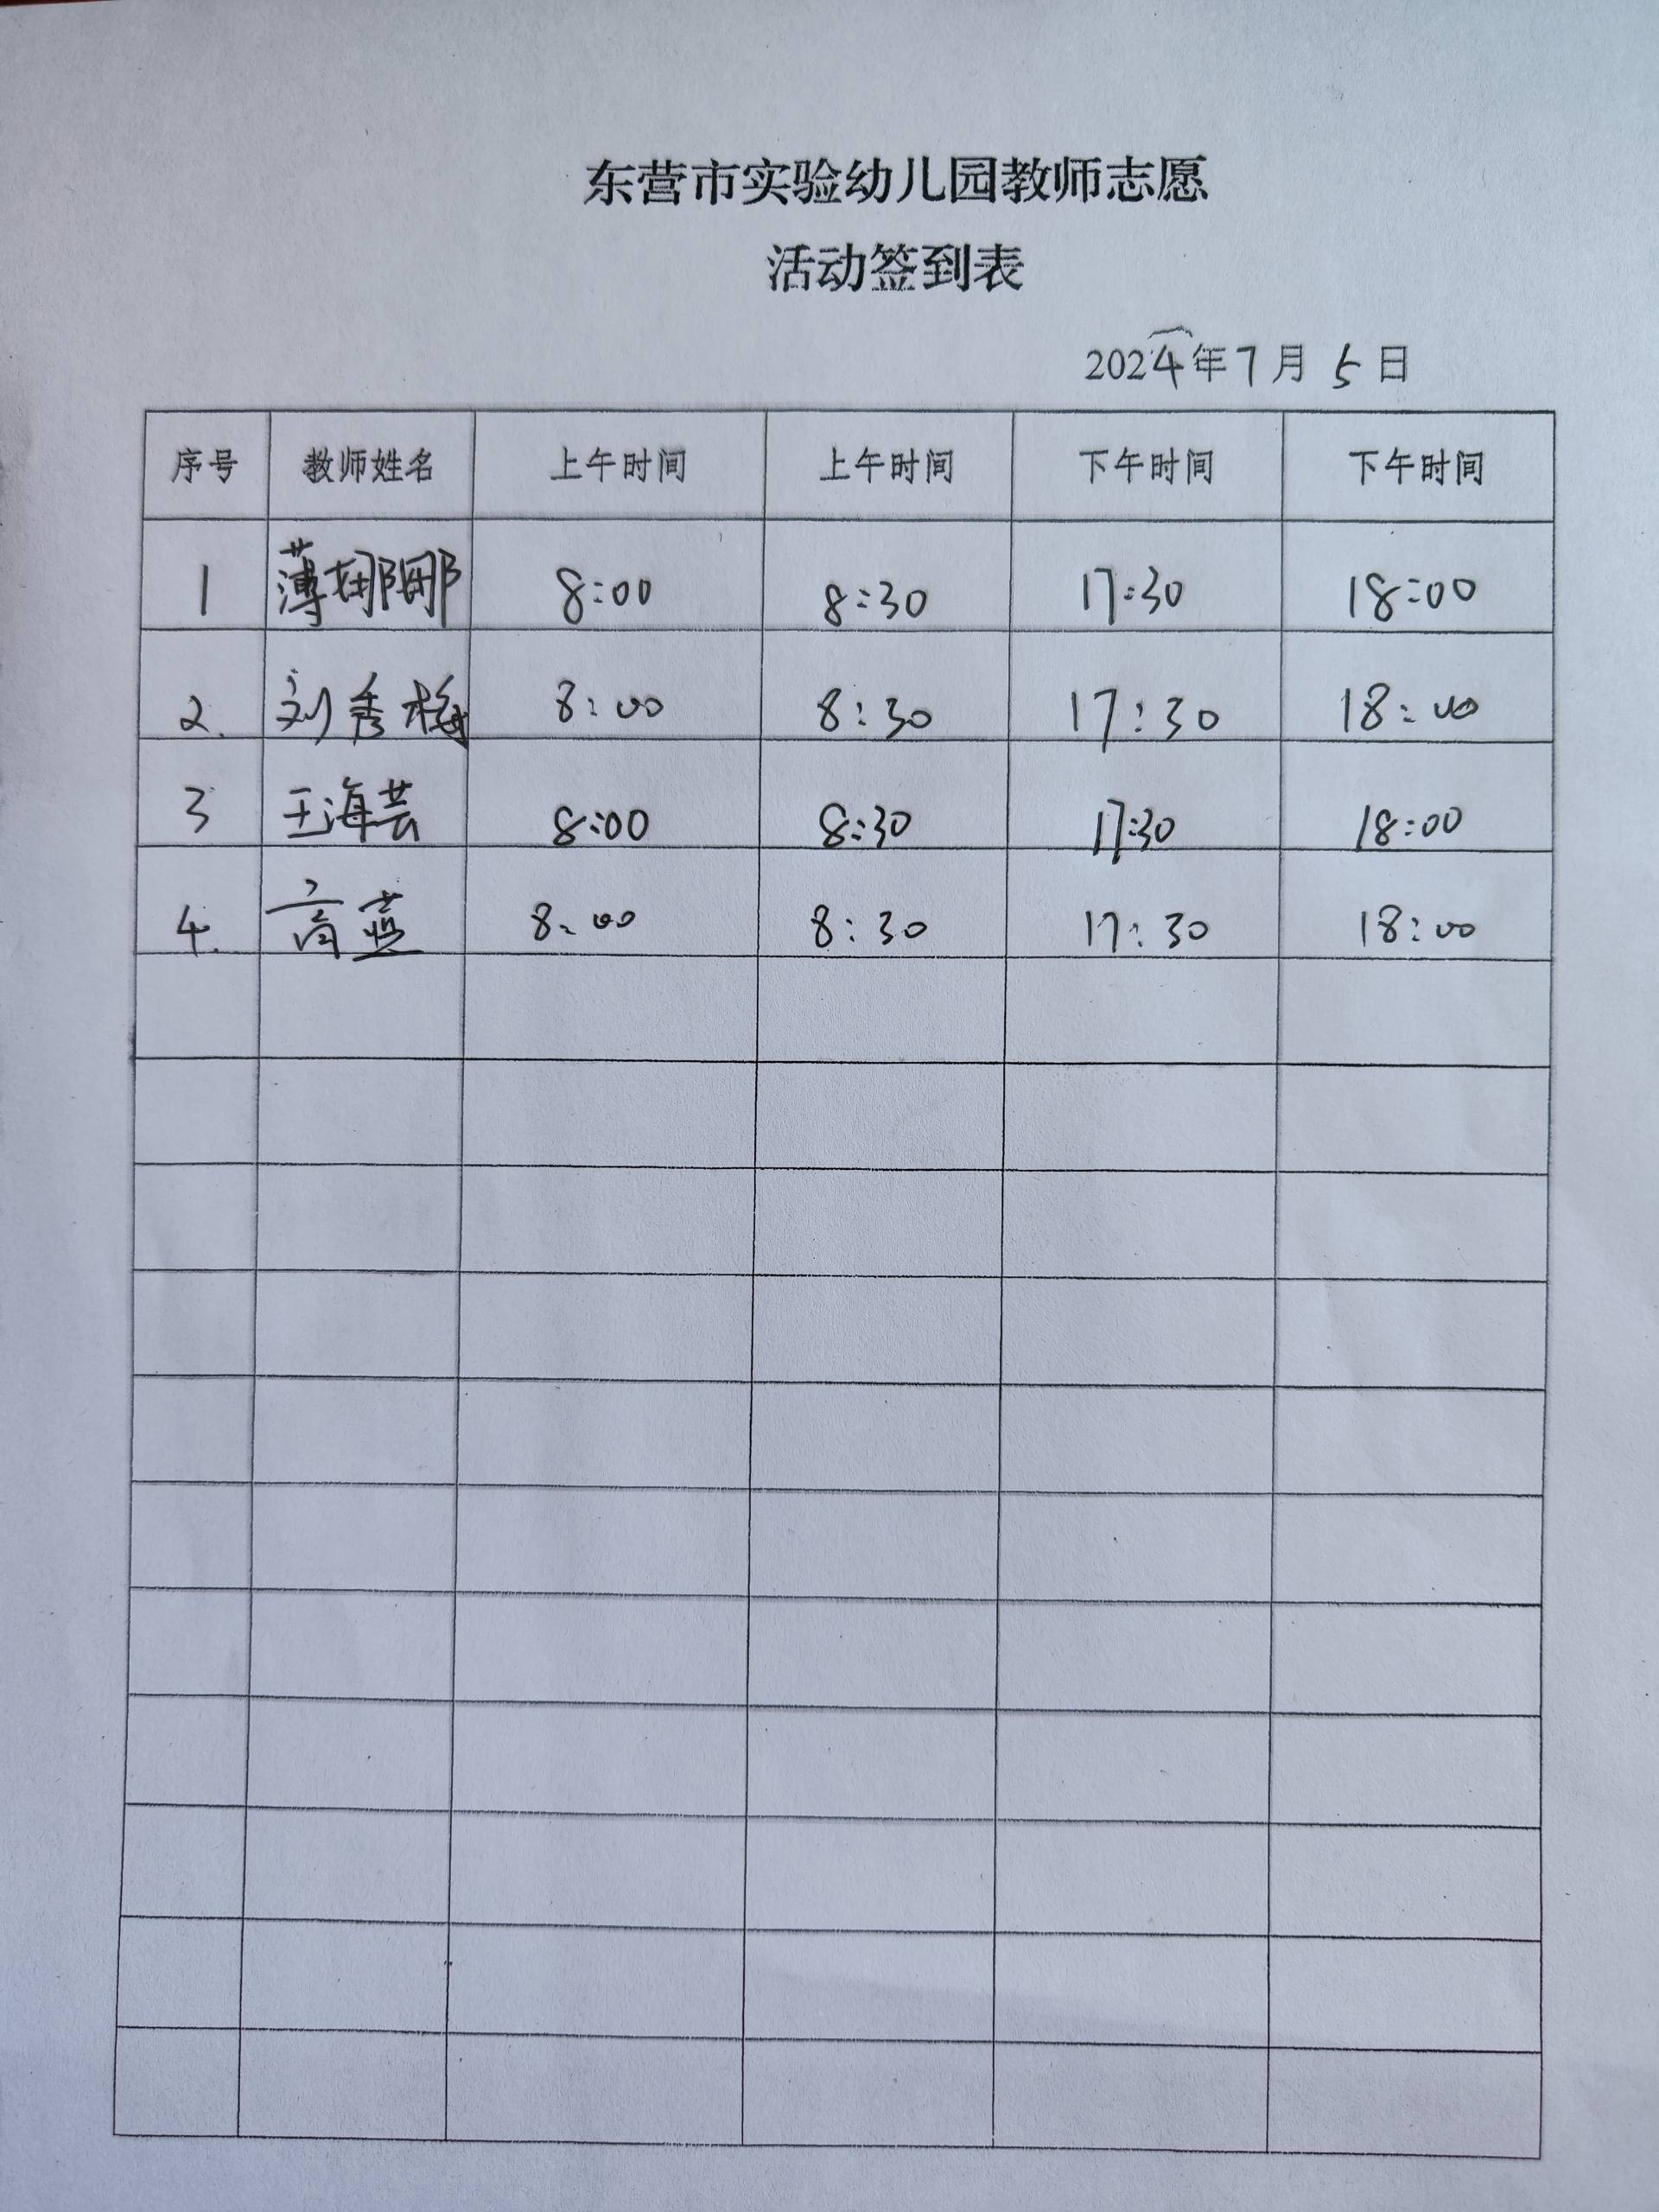 东营市实验幼儿园教师志愿
活动签到表
2024年7月5日
序号 教师姓名 上午时间 上午时间 下午时间 下午时间
1 薄娜娜 8:00 8:30 17:30 18:00
2. 刘秀梅 8:00 8:30 17:30 18:00
3 王海芸 8:00 8:30 17:30 18:00
4. 高蓝 8:00 8:30 17:30 18:00